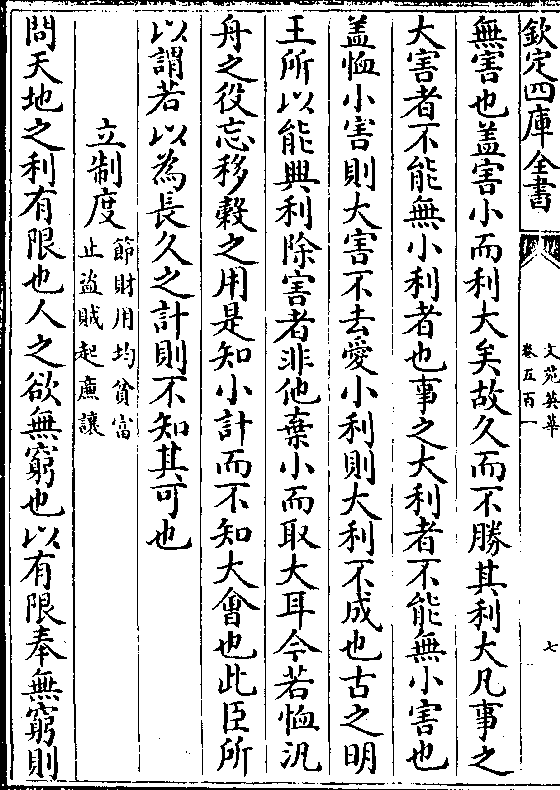 欽定四庫全書
文苑英華
卷五百一
七
無害也盖害小而利大矣故久而不勝其利大凡事之
大害者不能無小利者也事之大利者不能無小害也
盖恤小害則大害不去愛小利則大利不成也古之明
王所以能興利除害者非他棄小而取大耳今若恤汎
舟之役忘移轂之用是知小計而不知大會也此臣所
以謂若以為長久之計則不知其可也
立制度
節財用均貧富
止盗賊起廉讓
問天地之利有限也人之欲無窮也以有限奉無窮則